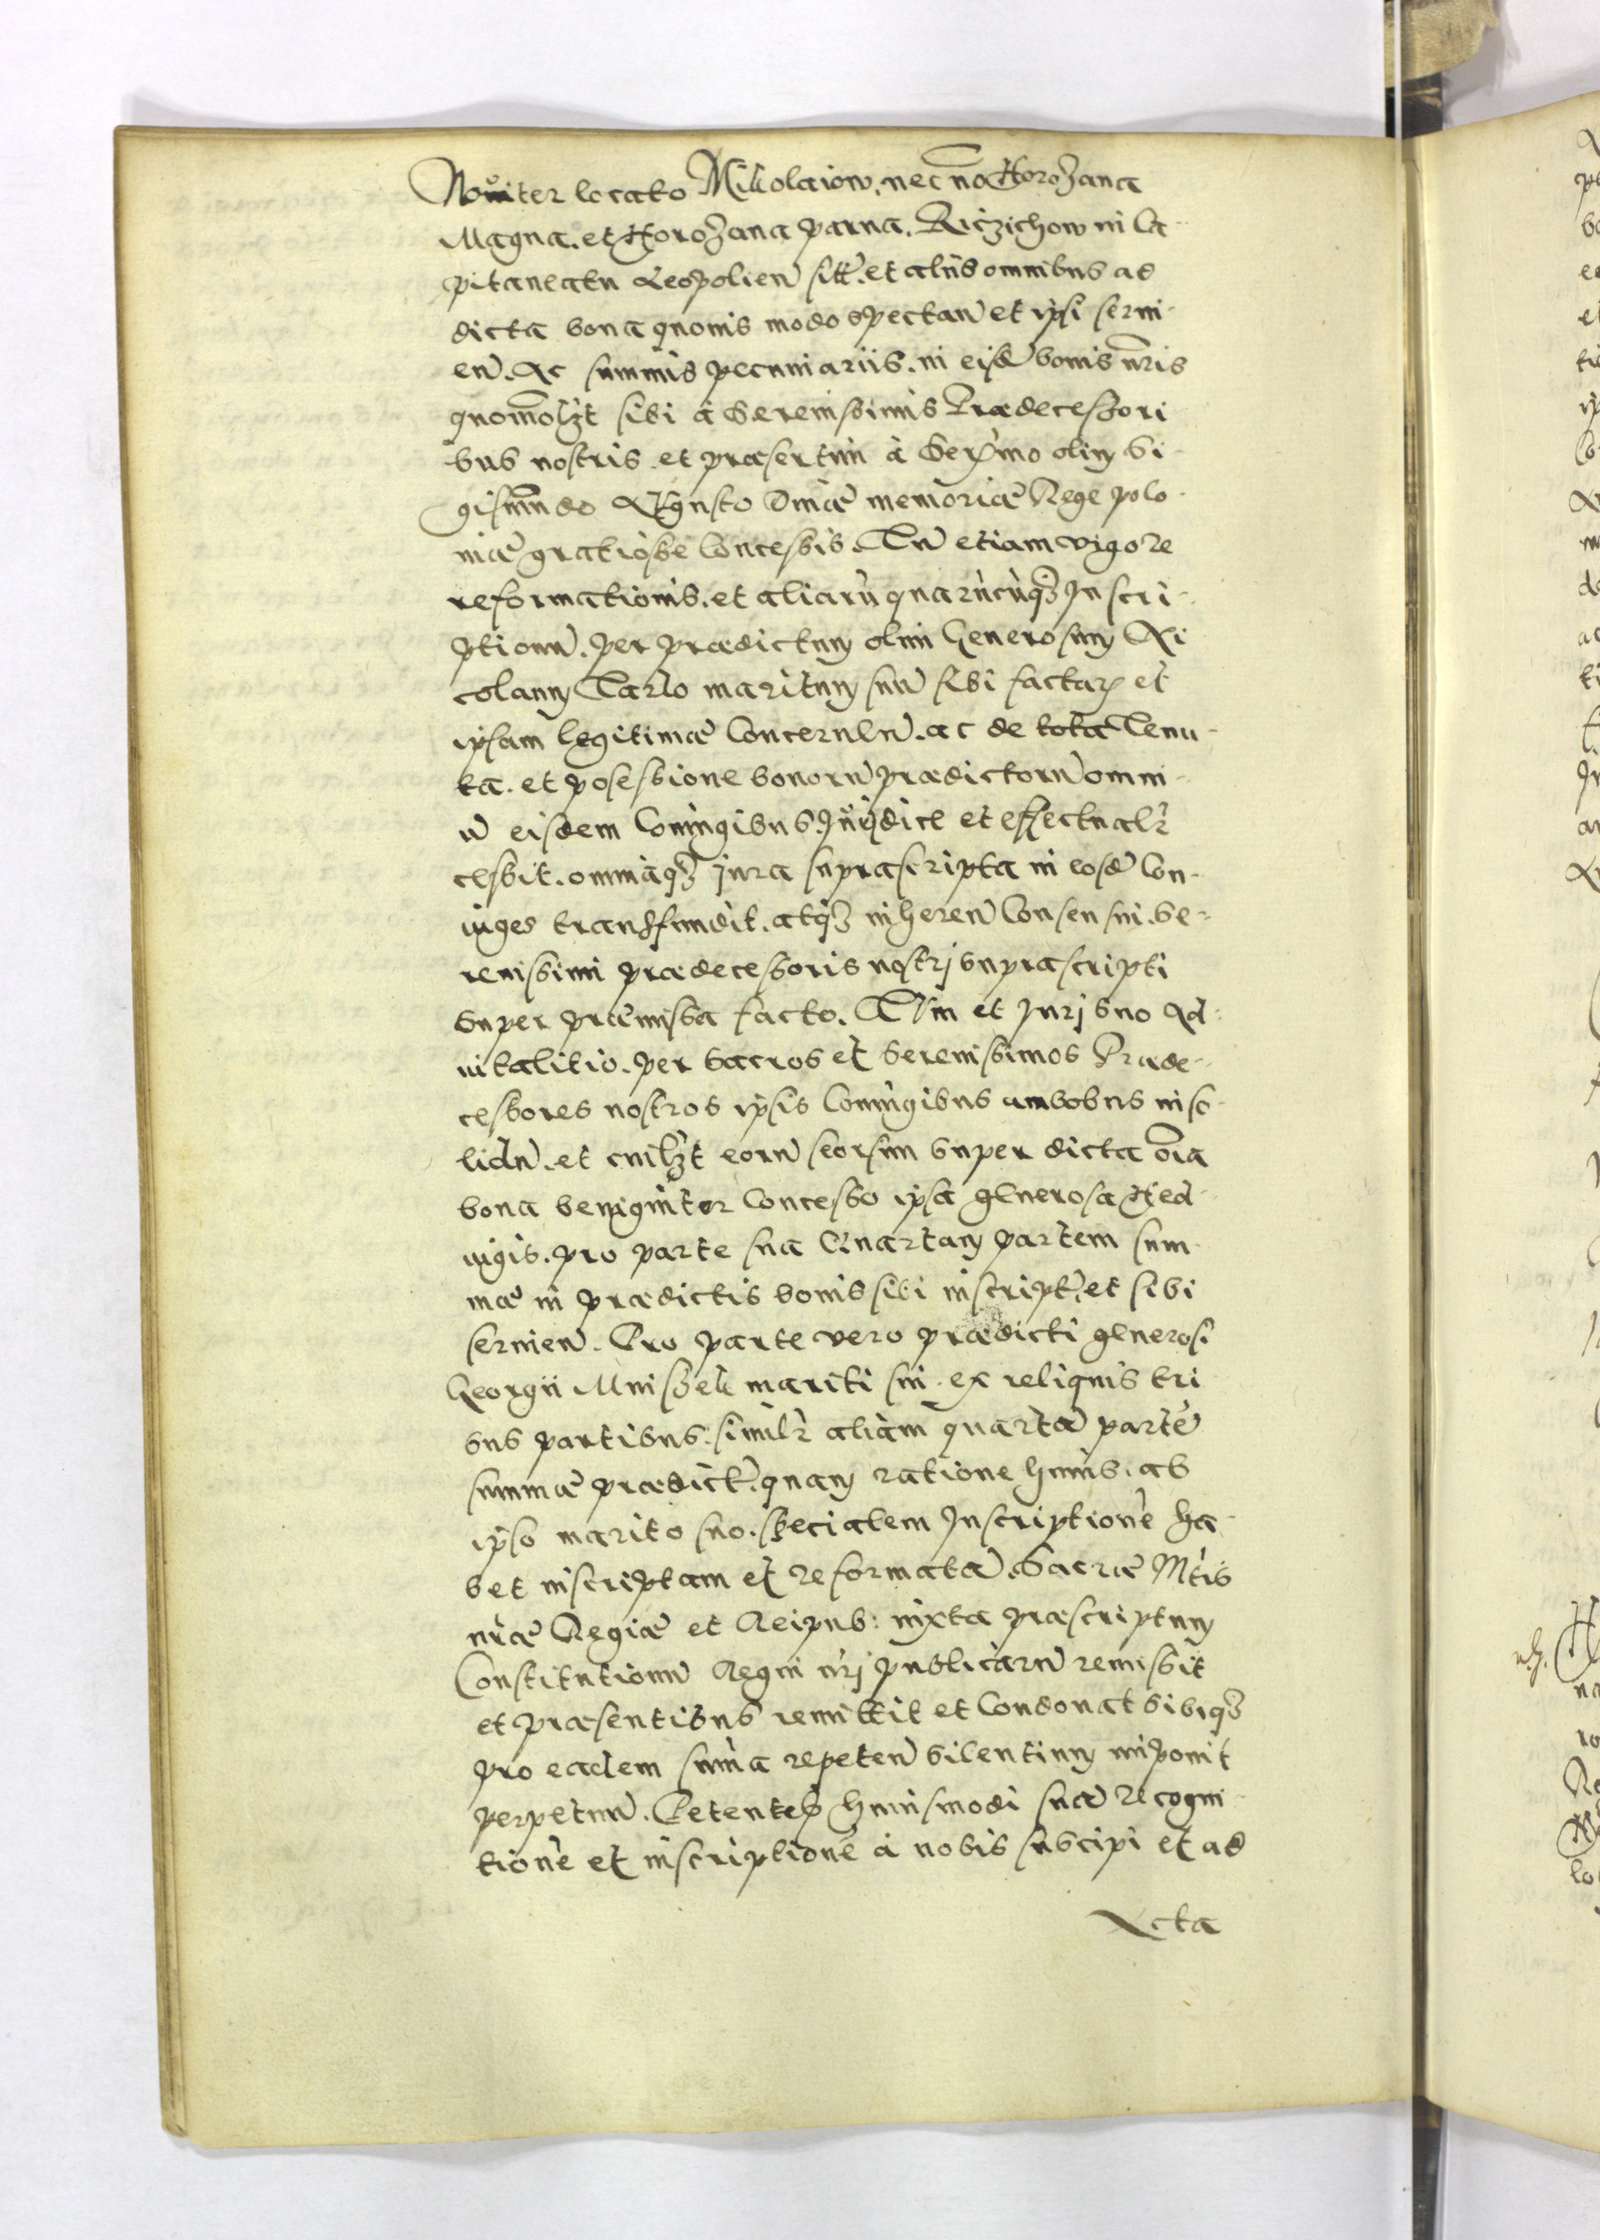 Noviter locato Mikolaiow, nec nō Horozana
Magna, et Horozana parva, Riczichow in Ca-
pitaneatu Leopolien̄ sitt̄, et aliis omnibus ad
dicta bona quovis modo spectan̄ et ipsi servi-
en̄. Ac summis pecuniariis, in eisd̄ bonis nr̄is
quomōlzt sibi à Serenissimis Prædecessori-
bus nostris et præsertim à Ser̄mo olim Si-
gismūndo Augusto Divæ memoriæ Rege Polo-
niæ gratiosæ Concessis. Tū etiam vigore
reformationis, et aliarū quarūcūq3 Inscri-
ptionū, per prædictum olim Generosum Ni-
colaum Tarlo maritum suū sibi factar̄ et
ipsam legitimæ Concernen̄, ac de tota Tenu-
ta, et posessione bonorū prædictorū omni-
ū eisdem Coniugibus Iuridice et effectualr̄
cessit, omniaq3 jura suprascripta in eosd̄ Con-
iuges transfundit, atq3 inheren̄ Consensui Se-
renissimi prædecessoris nostrj supra scripti
super præmissa facto. Tum et Jurj suo Ad-
vitalitio, per Sacros et Serenissimos Præde-
cessores nostros ipsis Coniugibus ambobus in so-
lidū, et cuilzt eorū seorsim super dicta ōia
bona benigniter Concesso ipsa generosa Hed-
vigis, pro parte sua Quartam partem sum-
mæ in prædictis bonis sibi inscript̄, et sibi
servien̄. Pro parte vero prædicti generosi
Georgii Mniszek mariti sui ex reliquis tri-
bus partibus similr̄ aliam quartā partē
summæ prædict̄, quam ratione huius, ab
ipso marito suo, specialem Inscriptionē ha-
bet inscriptam et reformatā. Sacræ Mt̄is
nr̄æ Regiæ et Reipub: iuxta præscriptum
Constitutionū Regni nr̄j publicarū remissit
et præsentibus remittit et Condonat sibiq3
pro eadem sum̄a repeten̄ silentium imponit
perpetuū. Petentes huiusmodi suā recogni-
tionē et inscriptionē à nobis suscipi et ad
Acta